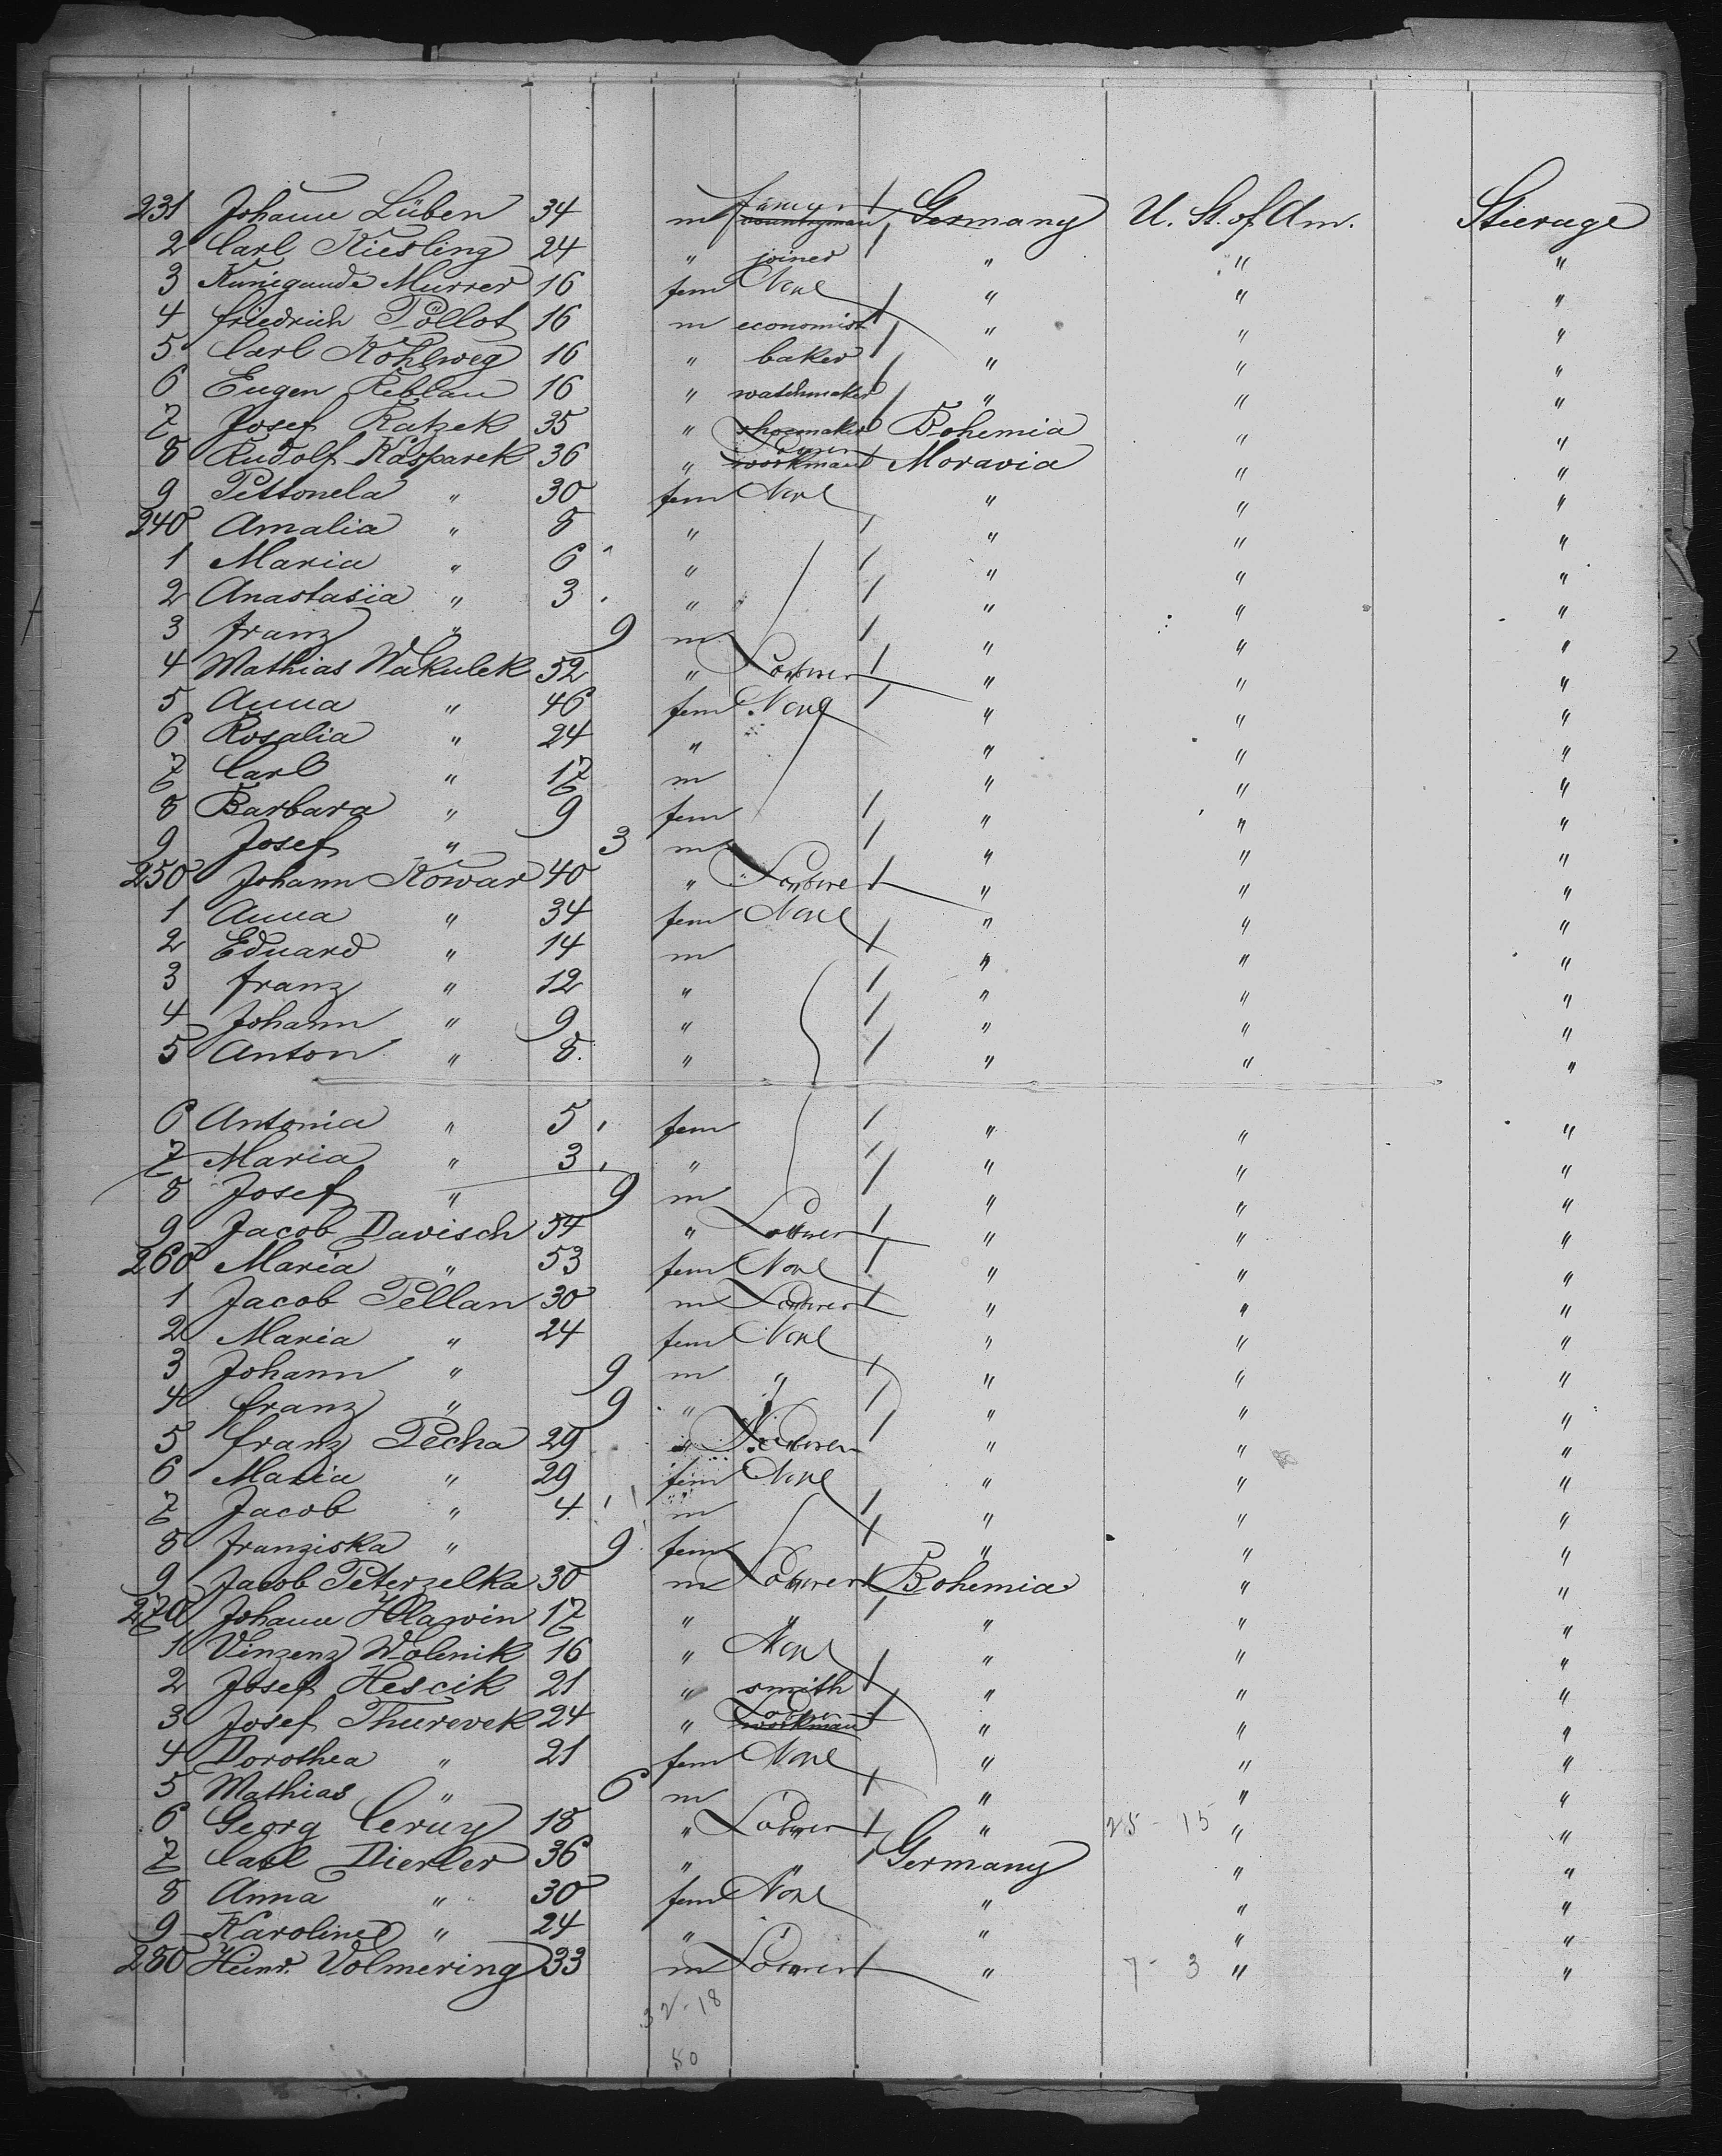 231 Johann Lüben 34 m farmer countryman Germany U. St. of Am. Steerage
2 Carl Kiesling 24 " joiner " " "
3 Kunigunde Murrer 16 fem None " " "
4 Friedrich Pöllot 16 m economist " " "
5 Carl Kohlweg 16 " baker " " "
6 Eugen Reblau 16 " watchmaker " " "
7 Josef Ratzek 35 " shoemaker Bohemia " "
8 Rudolf Kasparek 36 " workman Moravia " "
9 Pettonela " 30 fem None " " "
240 Amalia " 8 " " " "
1 Maria " 6 " " " "
2 Anastasia " 3 " " " "
3 Franz " 9 m " " "
4 Mathias Wakulek 52 " Laborer " " "
5 Anna " 46 fem None " " "
6 Rosalia " 24 " " " "
7 Carl " 17 m " " "
8 Barbara " 9 fem " " "
9 Josef " 3 m " " "
250 Johann Kowar 40 " Laborer " " "
1 Anna " 34 fem None " " "
2 Eduard " 14 m " " "
3 Franz " 12 " " " "
4 Johann " 9 " " " "
5 Anton " 8 " " " "
6 Antonia " 5 fem " " "
7 Maria " 3 " " " "
8 Josef " 9 m " " "
9 Jacob Davisch 54 " Laborer " " "
260 Maria " 53 fem None " " "
1 Jacob Pellan 30 m Laborer " " "
2 Maria " 24 fem None " " "
3 Johann " 9 m " " " "
4 Franz " 9 " " " "
5 Franz Pecha 29 " Laborer " " "
6 Maria " 29 fem None " " "
7 Jacob " 4 m " " "
8 Franziska " 9 fem " " "
9 Jacob Peterzelka 30 m Laborer Bohemia " "
270 Johann Hlawin 17 " " " " "
1 Vinzenz Wolnik 16 " None " " "
2 Josef Hescik 21 " smith " " "
3 Josef Thurevek 24 " Laborer workman " " "
4 Dorothea " 21 fem None " " "
5 Mathias " 6 m " " "
6 Georg Cerny 18 " Laborer " 25-15 " "
7 Carl Dierler 36 " " Germany " "
8 Anna " 30 fem None " " "
9 Karoline " 24 " " " "
280 Heinr. Volmering 33 m Laborer " 7-3 " "
32-18
50